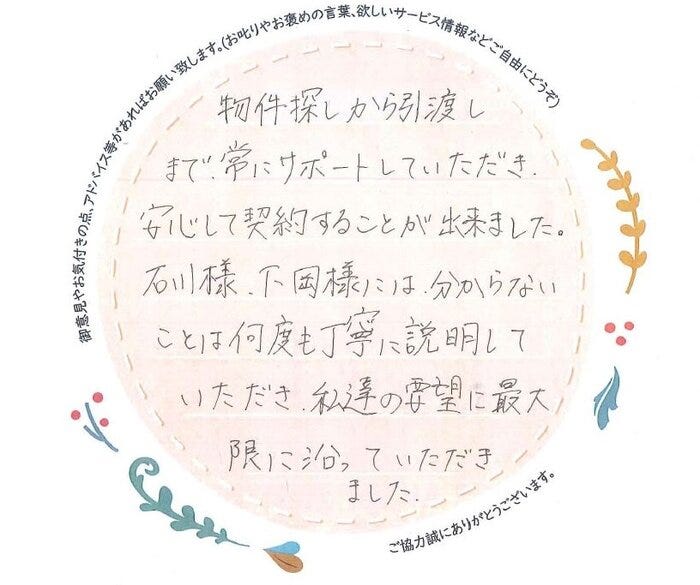 御意見やお気付きの点、アドバイス等があればお願い致します。(お叱りやお褒めの言葉、欲しいサービス情報などご自由にどうぞ)
物件探しから引渡し
まで、常にサポートしていただき、
安心して契約することが出来ました。
石川様、下岡様には、分からない
ことは何度も丁寧に説明して
いただき、私達の要望に最大
限に沿っていただき
ました。
ご協力誠にありがとうございます。